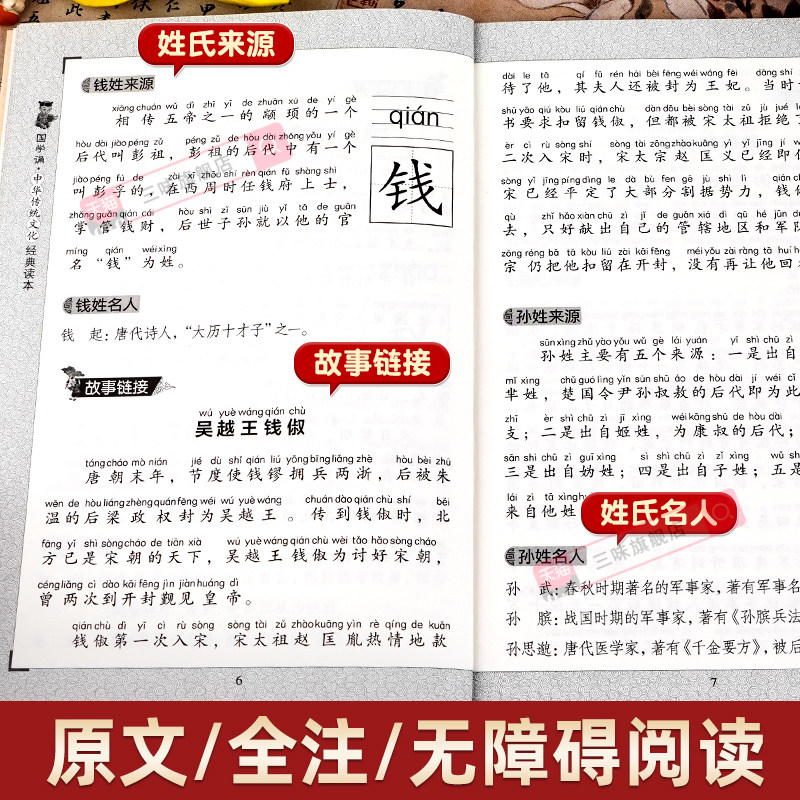 姓氏来源
国学诵·中华传统文化经典读本
钱姓来源
xiāng chuán wǔ dì zhī yī de zhuān xū de yí gè
相传五帝之一的颛顼的一个
hòu dài jiào péng zǔ péng zǔ de hòu dài zhōng yǒu yí gè
后代叫彭祖，彭祖的后代中有一个
jiào péng fú de zài xī zhōu shí rèn qián fǔ shàng shì
叫彭孚的，在西周时任钱府上士，
zhǎng guǎn qián cái hòu shì zǐ sūn jiù yǐ tā de guān
掌管钱财，后世子孙就以他的官
míng qián wéi xìng
名“钱”为姓。
qián
钱
钱姓名人
钱 起：唐代诗人，“大历十才子”之一。
故事链接
故事链接
wú yuè wáng qián chù
吴越王钱俶
táng cháo mò nián jié dù shǐ qián liú yōng bīng liǎng zhè hòu bèi zhū
唐朝末年，节度使钱镠拥兵两浙，后被朱
wēn de hòu liáng zhèng quán fēng wéi wú yuè wáng chuán dào qián chù shí běi
温的后梁政权封为吴越王。传到钱俶时，北
fāng yǐ shì sòng cháo de tiān xià wú yuè wáng qián chù wèi tǎo hǎo sòng cháo
方已是宋朝的天下，吴越王钱俶为讨好宋朝，
céng liǎng cì dào kāi fēng jìn jiàn huáng dì
曾两次到开封觐见皇帝。
qián chù dì yī cì rù sòng sòng tài zǔ zhào kuāng yìn rè qíng de kuǎn
钱俶第一次入宋，宋太祖赵匡胤热情地款
6
dài le tā qí fū rén hái bèi fēng wéi wáng fēi dāng shí
待了他，其夫人还被封为王妃。当时
shū yāo qiú kòu liú qián chù dàn dōu bèi sòng tài zǔ jù jué
书要求扣留钱俶，但都被宋太祖拒绝了
èr cì rù sòng shí sòng tài zōng zhào kuāng yì yǐ jīng jí
二次入宋时，宋太宗赵匡义已经即
sòng yǐ jīng píng dìng le dà bù fen gē jù shì lì qián
宋已经平定了大部分割据势力，钱
qù zhǐ hǎo xiàn chū zì jǐ de guǎn xiá dì qū hé jūn duì
去，只好献出自己的管辖地区和军队
zōng réng bǎ tā kòu liú zài kāi fēng méi yǒu zài ràng tā huí
宗仍把他扣留在开封，没有再让他回
孙姓来源
sūn xìng zhǔ yào yǒu wǔ gè lái yuán yī shì chū zì
孙姓主要有五个来源：一是出自
mǐ xìng chǔ guó lìng yǐn sūn shū áo de hòu dài jí wéi cǐ
芈姓，楚国令尹孙叔敖的后代即为此
zhī èr shì chū zì jī xìng wéi kāng shū de hòu dài
支；二是出自姬姓，为康叔的后代；
sān shì chū zì guī xìng sì shì chū zì zǐ xìng wǔ shì
三是出自妫姓；四是出自子姓；五是
lái zì tā xìng
来自他姓
姓氏名人
孙姓名人
孙 武：春秋时期著名的军事家，著有军事名
孙 膑：战国时期的军事家，著有《孙膑兵法
孙思邈：唐代医学家，著有《千金要方》，被后
7
天猫 三味旗舰店
天猫 三味旗舰店
原文/全注/无障碍阅读